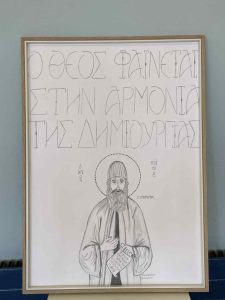 Ο ΘΕΟΣ ΦΑΙΝΕΤΑΙ
ΣΤΗΝ ΑΡΜΟΝΙΑ
ΤΗΣ ΔΗΜΙΟΥΡΓΙΑΣ